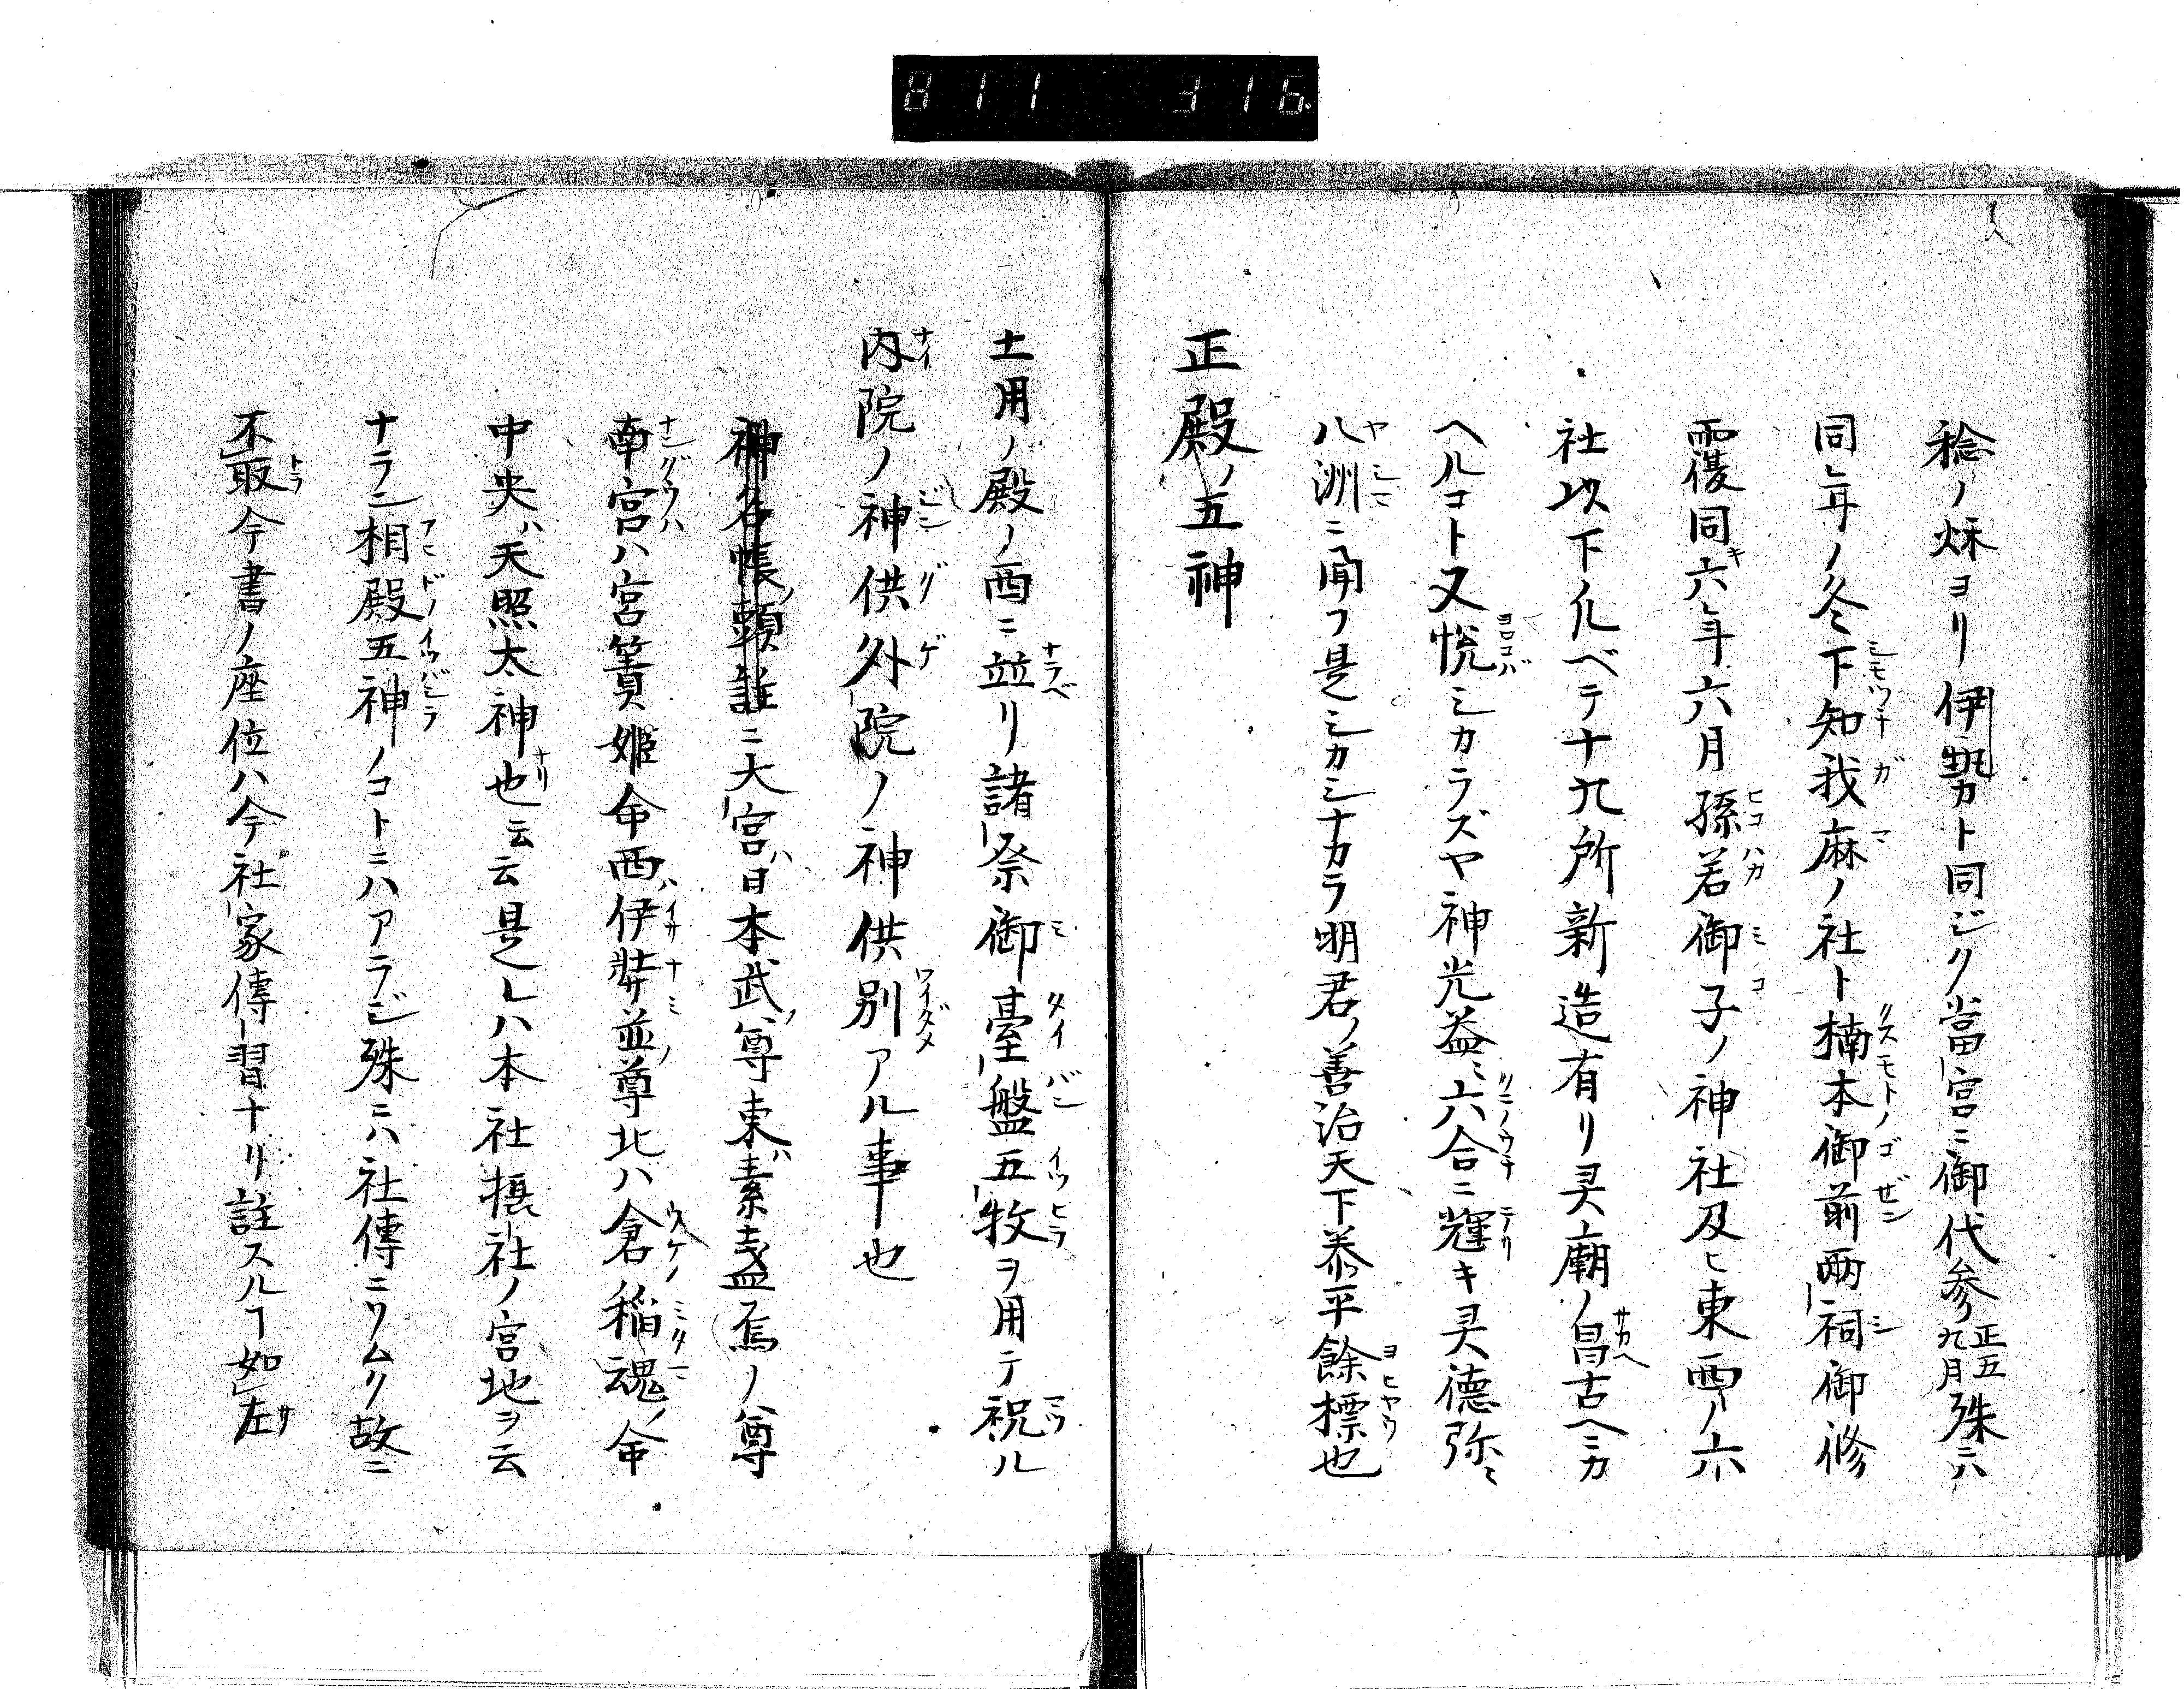 811 316.
稔ノ秌ヨリ伊勢カト同ジク當宮ニ御代参正五九月殊ニハ
同年ノ冬下知我麻ノ社ト楠本御前両祠御修
覆同六年六月孫若御子ノ神社及ヒ東西ノ六
社以下凡ベテ十九所新造有リ灵廟ノ昌古ヘニカ
ヘルコト又悦シカラズヤ神光益ミ六合ニ輝キ灵德弥ミ
八洲ニ聞フ是シカシナカラ明君ノ善治天下泰平餘標也
正殿ノ五神
土用ノ殿ノ西ニ並リ諸祭御臺盤五牧ヲ用テ祝ル
内院ノ神供外院ノ神供別アル事也
神名帳頭註ニ大宮ハ日本武ノ尊東ハ素盞烏ノ尊
南宮ハ宮簀姫命西ハ伊弉並尊北ハ倉稲魂ノ命
中央ハ天照太神也云云是レハ本社摂社ノ宮地ヲ云
ナラン相殿五神ノコトニハアラジ殊ニハ社傳ニソムク故ニ
不取今書ノ座位ハ今社家傳習ナリ註スルヿ如左